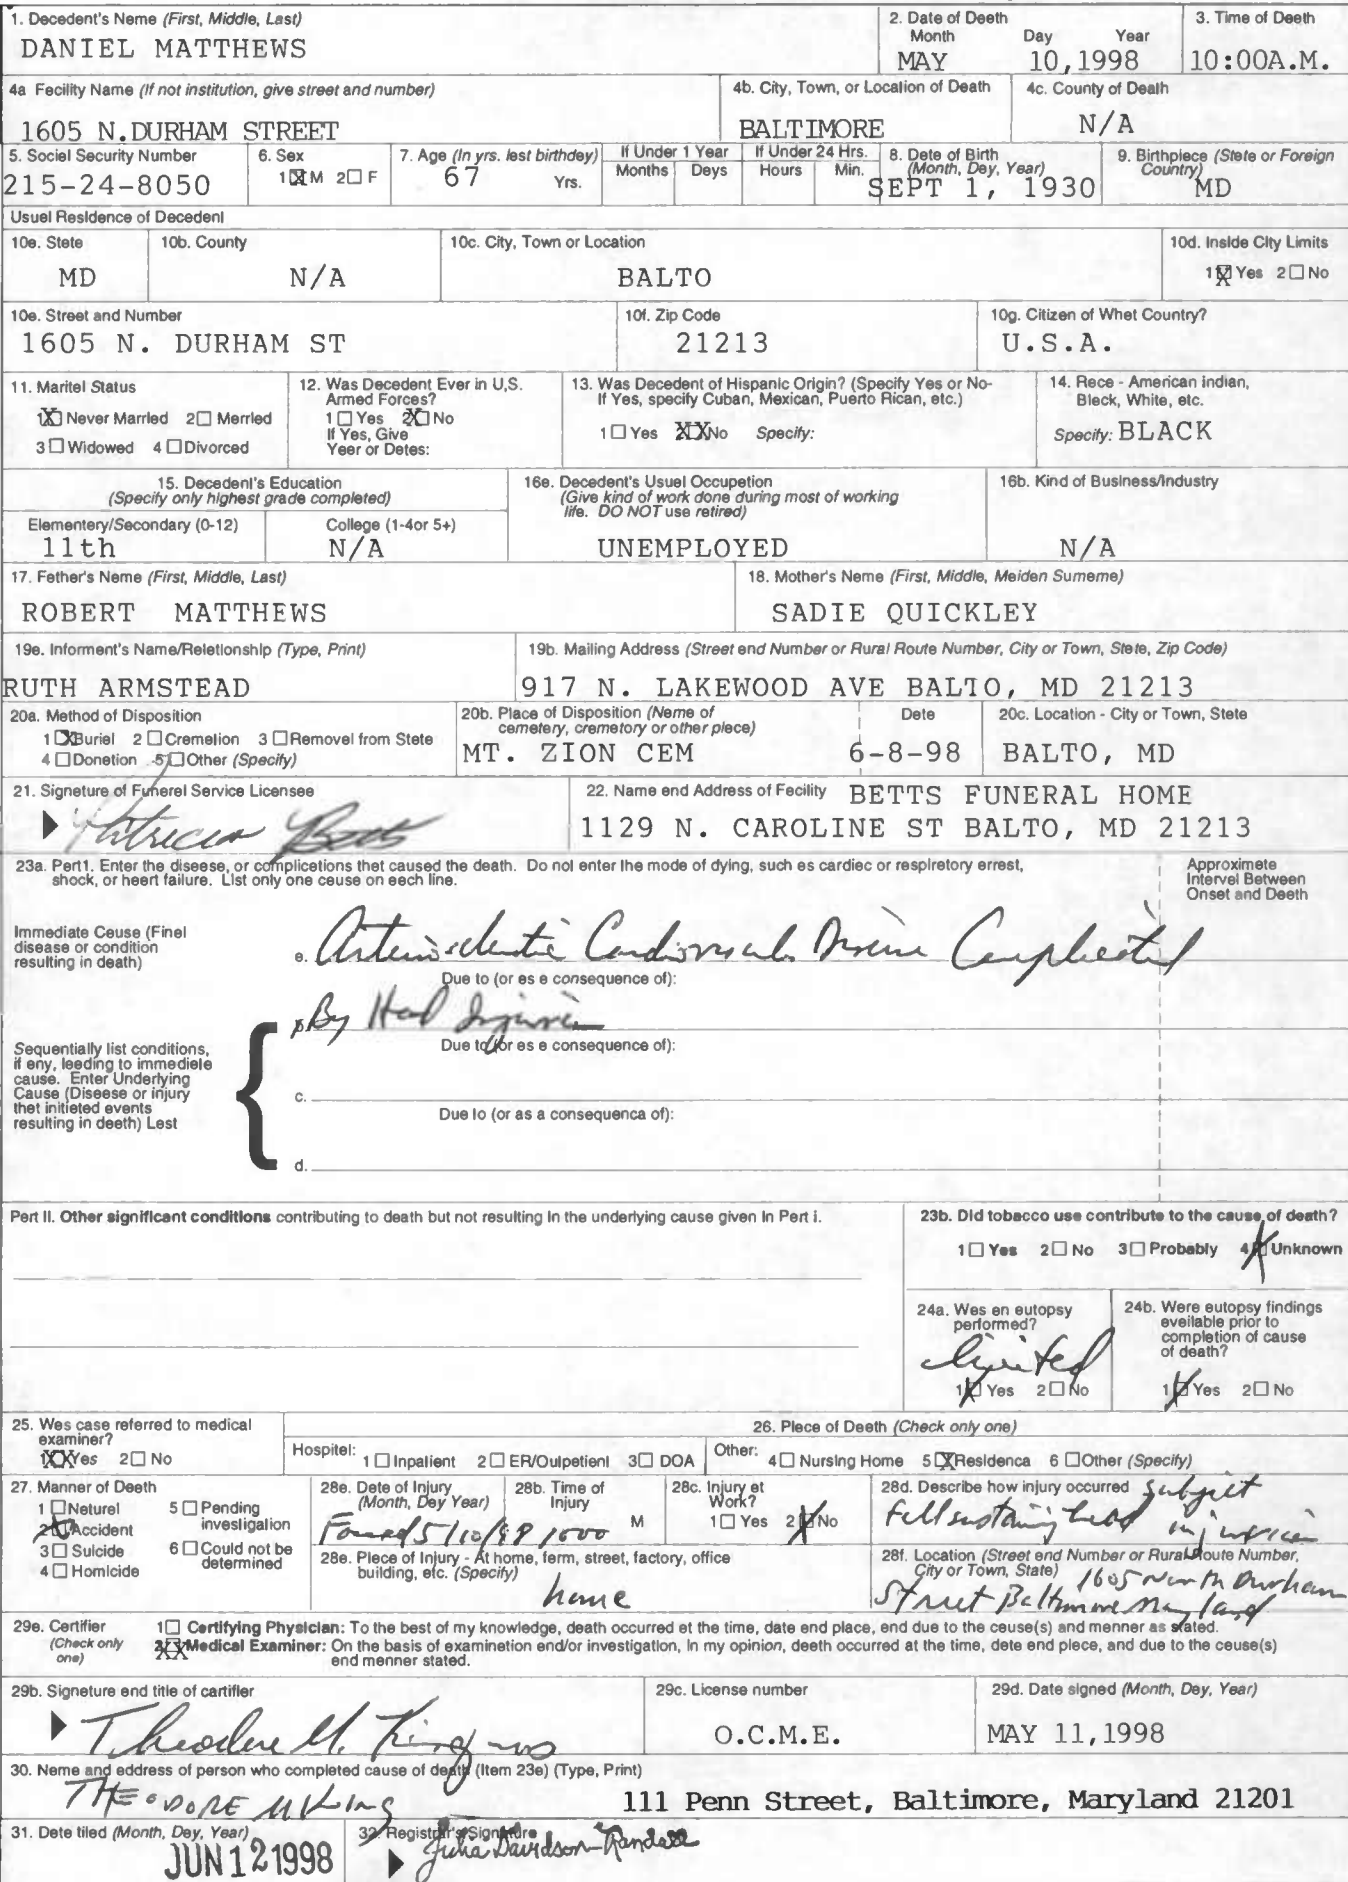 1. Decedent's Name (First, Middle, Last)
DANIEL MATTHEWS
2. Date of Deeth
Month Day Year
MAY 10,1998
3. Time of Deeth
10:00A.M.
4a Fecility Name (If not institution, give street and number)
1605 N.DURHAM STREET
4b. City, Town, or Location of Death
BALTIMORE
4c. County of Death
N/A
5. Sociel Security Number
215-24-8050
6. Sex
1☒M 2☐ F
7. Age (In yrs. lest birthdey)
67 Yrs.
If Under 1 Year
Months Deys
If Under 24 Hrs.
Hours Min.
8. Dete of Birth
(Month, Dey, Year)
SEPT 1, 1930
9. Birthplece (Stete or Foreign
Country)
MD
Usuel Residence of Decedent
10e. Stete
MD
10b. County
N/A
10c. City, Town or Location
BALTO
10d. Inside City Limits
1☒Yes 2☐No
10e. Street and Number
1605 N. DURHAM ST
10f. Zip Code
21213
10g. Citizen of Whet Country?
U.S.A.
11. Maritel Status
1☒ Never Married 2☐ Merried
3☐ Widowed 4☐ Divorced
12. Was Decedent Ever in U.S.
Armed Forces?
1☐Yes 2☒No
If Yes, Give
Yeer or Detes:
13. Was Decedent of Hispanic Origin? (Specify Yes or No-
If Yes, specify Cuban, Mexican, Puerto Rican, etc.)
1☐Yes 2☒No Specify:
14. Rece - American indian,
Bleck, White, etc.
Specify: BLACK
15. Decedenl's Education
(Specify only highest grade completed)
Elementery/Secondary (0-12)
11th
College (1-4or 5+)
N/A
16e. Decedent's Usuel Occupetion
(Give kind of work done during most of working
life. DO NOT use retired)
UNEMPLOYED
16b. Kind of Business/Industry
N/A
17. Father's Name (First, Middle, Last)
ROBERT MATTHEWS
18. Mother's Name (First, Middle, Meiden Surneme)
SADIE QUICKLEY
19e. Informent's Name/Reletionship (Type, Print)
RUTH ARMSTEAD
19b. Mailing Address (Street end Number or Rural Route Number, City or Town, Stete, Zip Code)
917 N. LAKEWOOD AVE BALTO, MD 21213
20a. Method of Disposition
1☒Buriel 2☐Cremetion 3☐Removel from Stete
4☐Donetion 5☐Other (Specify)
20b. Place of Disposition (Neme of
cemetery, cremetory or other plece)
MT. ZION CEM
Dete
6-8-98
20c. Location - City or Town, Stete
BALTO, MD
21. Signeture of Funerel Service Licensee
Patricia Betts
22. Name end Address of Fecility BETTS FUNERAL HOME
1129 N. CAROLINE ST BALTO, MD 21213
23a. Pert1. Enter the diseese, or complicetions thet caused the death. Do not enter the mode of dying, such es cardiec or respiretory errest,
shock, or heert failure. List only one ceuse on eech line.
Approximete
Intervel Between
Onset and Deeth
Immediate Ceuse (Finel
disease or condition
resulting in death)
e. Arteriosclerotic Cardiovascular Disease Complicated
Due to (or es e consequence of):
b. By Head Injuries
Due to (or es e consequence of):
Sequentially list conditions,
if eny, leeding to immediete
cause. Enter Underlying
Cause (Diseese or injury
thet initieted events
resulting in deeth) Lest
c.
Due to (or as a consequenca of):
d.
Part II. Other significant conditions contributing to death but not resulting in the underlying cause given in Part i.
23b. Did tobacco use contribute to the cause of death?
1☐Yes 2☐No 3☐Probably 4☒Unknown
24a. Wes en eutopsy
performed?
limited
1☒Yes 2☐No
24b. Were eutopsy findings
eveilable prior to
completion of cause
of death?
1☒Yes 2☐No
25. Wes case referred to medical
examiner?
1☒Yes 2☐No
26. Plece of Death (Check only one)
Hospitel: 1☐Inpalient 2☐ER/Outpetient 3☐ DOA
Other: 4☐Nursing Home 5☒Residenca 6☐Other (Specify)
27. Manner of Deeth
1☐Neturel 5☐Pending
investigation
2☒Accident
3☐Suicide 6☐Could not be
determined
4☐Homicide
28e. Dete of Injury
(Month, Dey Year)
Found 5/10/98
28b. Time of
Injury
1000 M
28c. Injury et
Work?
1☐Yes 2☒No
28d. Describe how injury occurred subject
fell sustaining head injuries
28e. Plece of Injury - At home, ferm, street, factory, office
building, etc. (Specify)
home
28f. Location (Street end Number or Rural Route Number,
City or Town, State) 1605 North Durham
Street Baltimore Maryland
29e. Certifier
(Check only
one)
1☐ Certifying Physician: To the best of my knowledge, death occurred et the time, date end place, end due to the ceuse(s) and menner as stated.
2☒Medical Examiner: On the basis of exeminetion end/or investigation, In my opinion, deeth occurred at the time, dete end plece, and due to the ceuse(s)
end menner stated.
29b. Signeture end title of cartifier
Theodore M. King MD
29c. License number
O.C.M.E.
29d. Date signed (Month, Dey, Year)
MAY 11,1998
30. Name and eddress of person who completed cause of death (Item 23e) (Type, Print)
THEODORE M KING
111 Penn Street, Baltimore, Maryland 21201
31. Dete tiled (Month, Dey, Year)
JUN 12 1998
32. Registrar's Signature
Julia Davidson-Randall